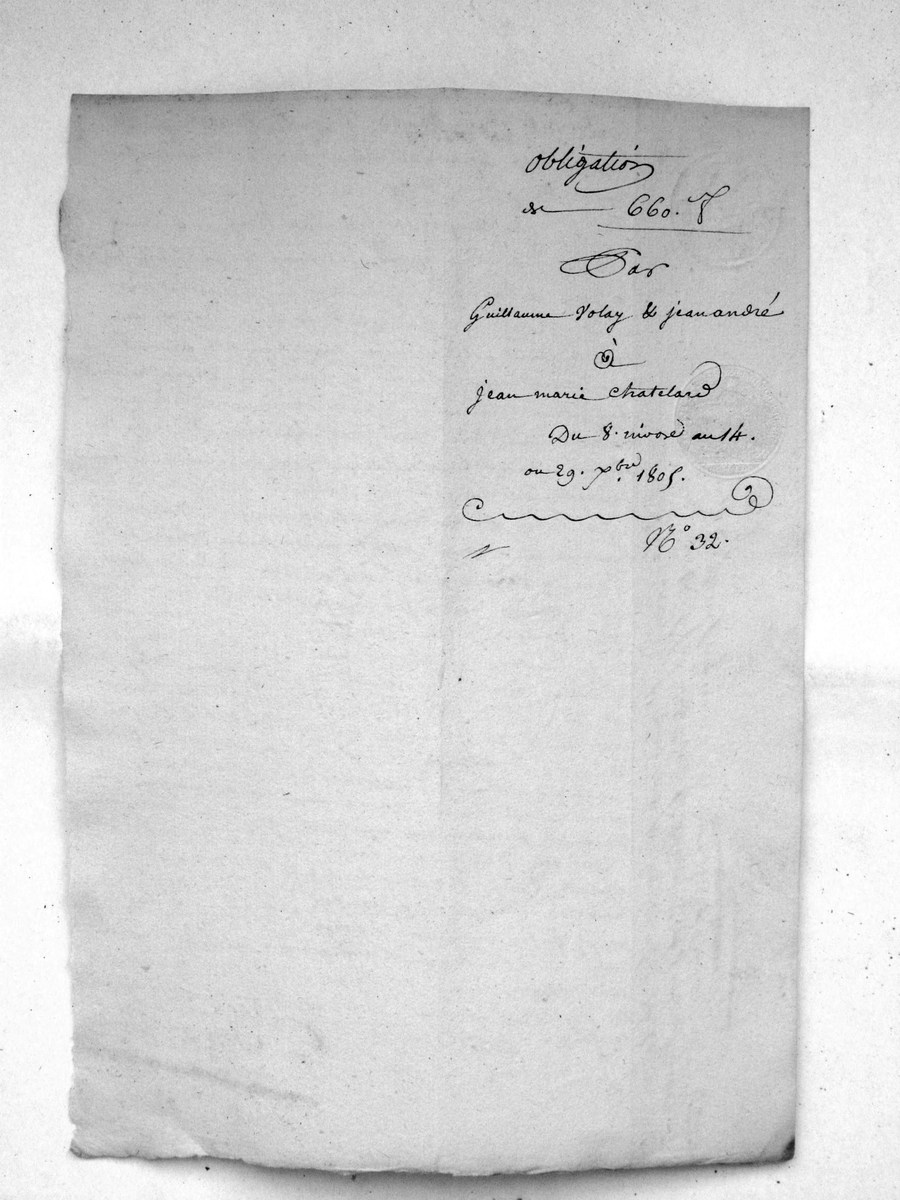 obligation
de 660. f
Par
Guillaume Volay & jean andré
à
jean marie Chatelard
Du 8. nivose an 14.
ou 29. Xbre 1805.
N° 32.